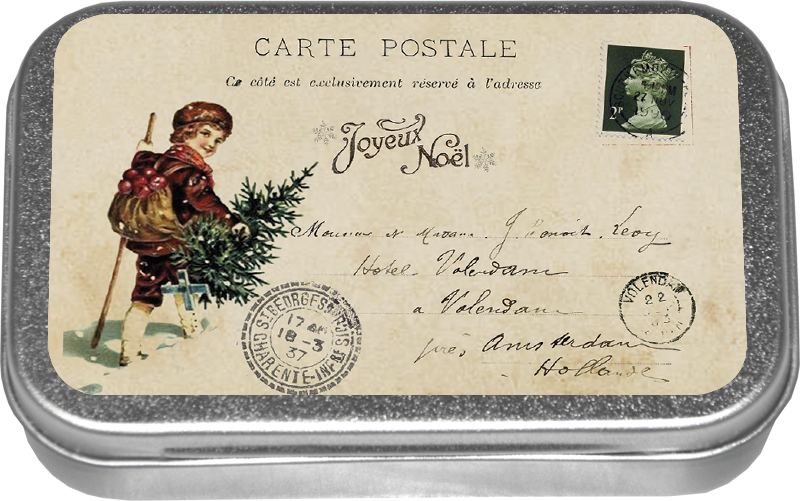 CARTE POSTALE
Ce côté est exclusivement réservé à l'adresse
2P
Joyeux
Noël
Monsieur et Madame J. Benoit. Levy
Hotel Volendam
a Volendam
près Amsterdam
Hollande
VOLENDAM
22
ST GEORGES
17
18-3
37
CHARENTE-INFRE